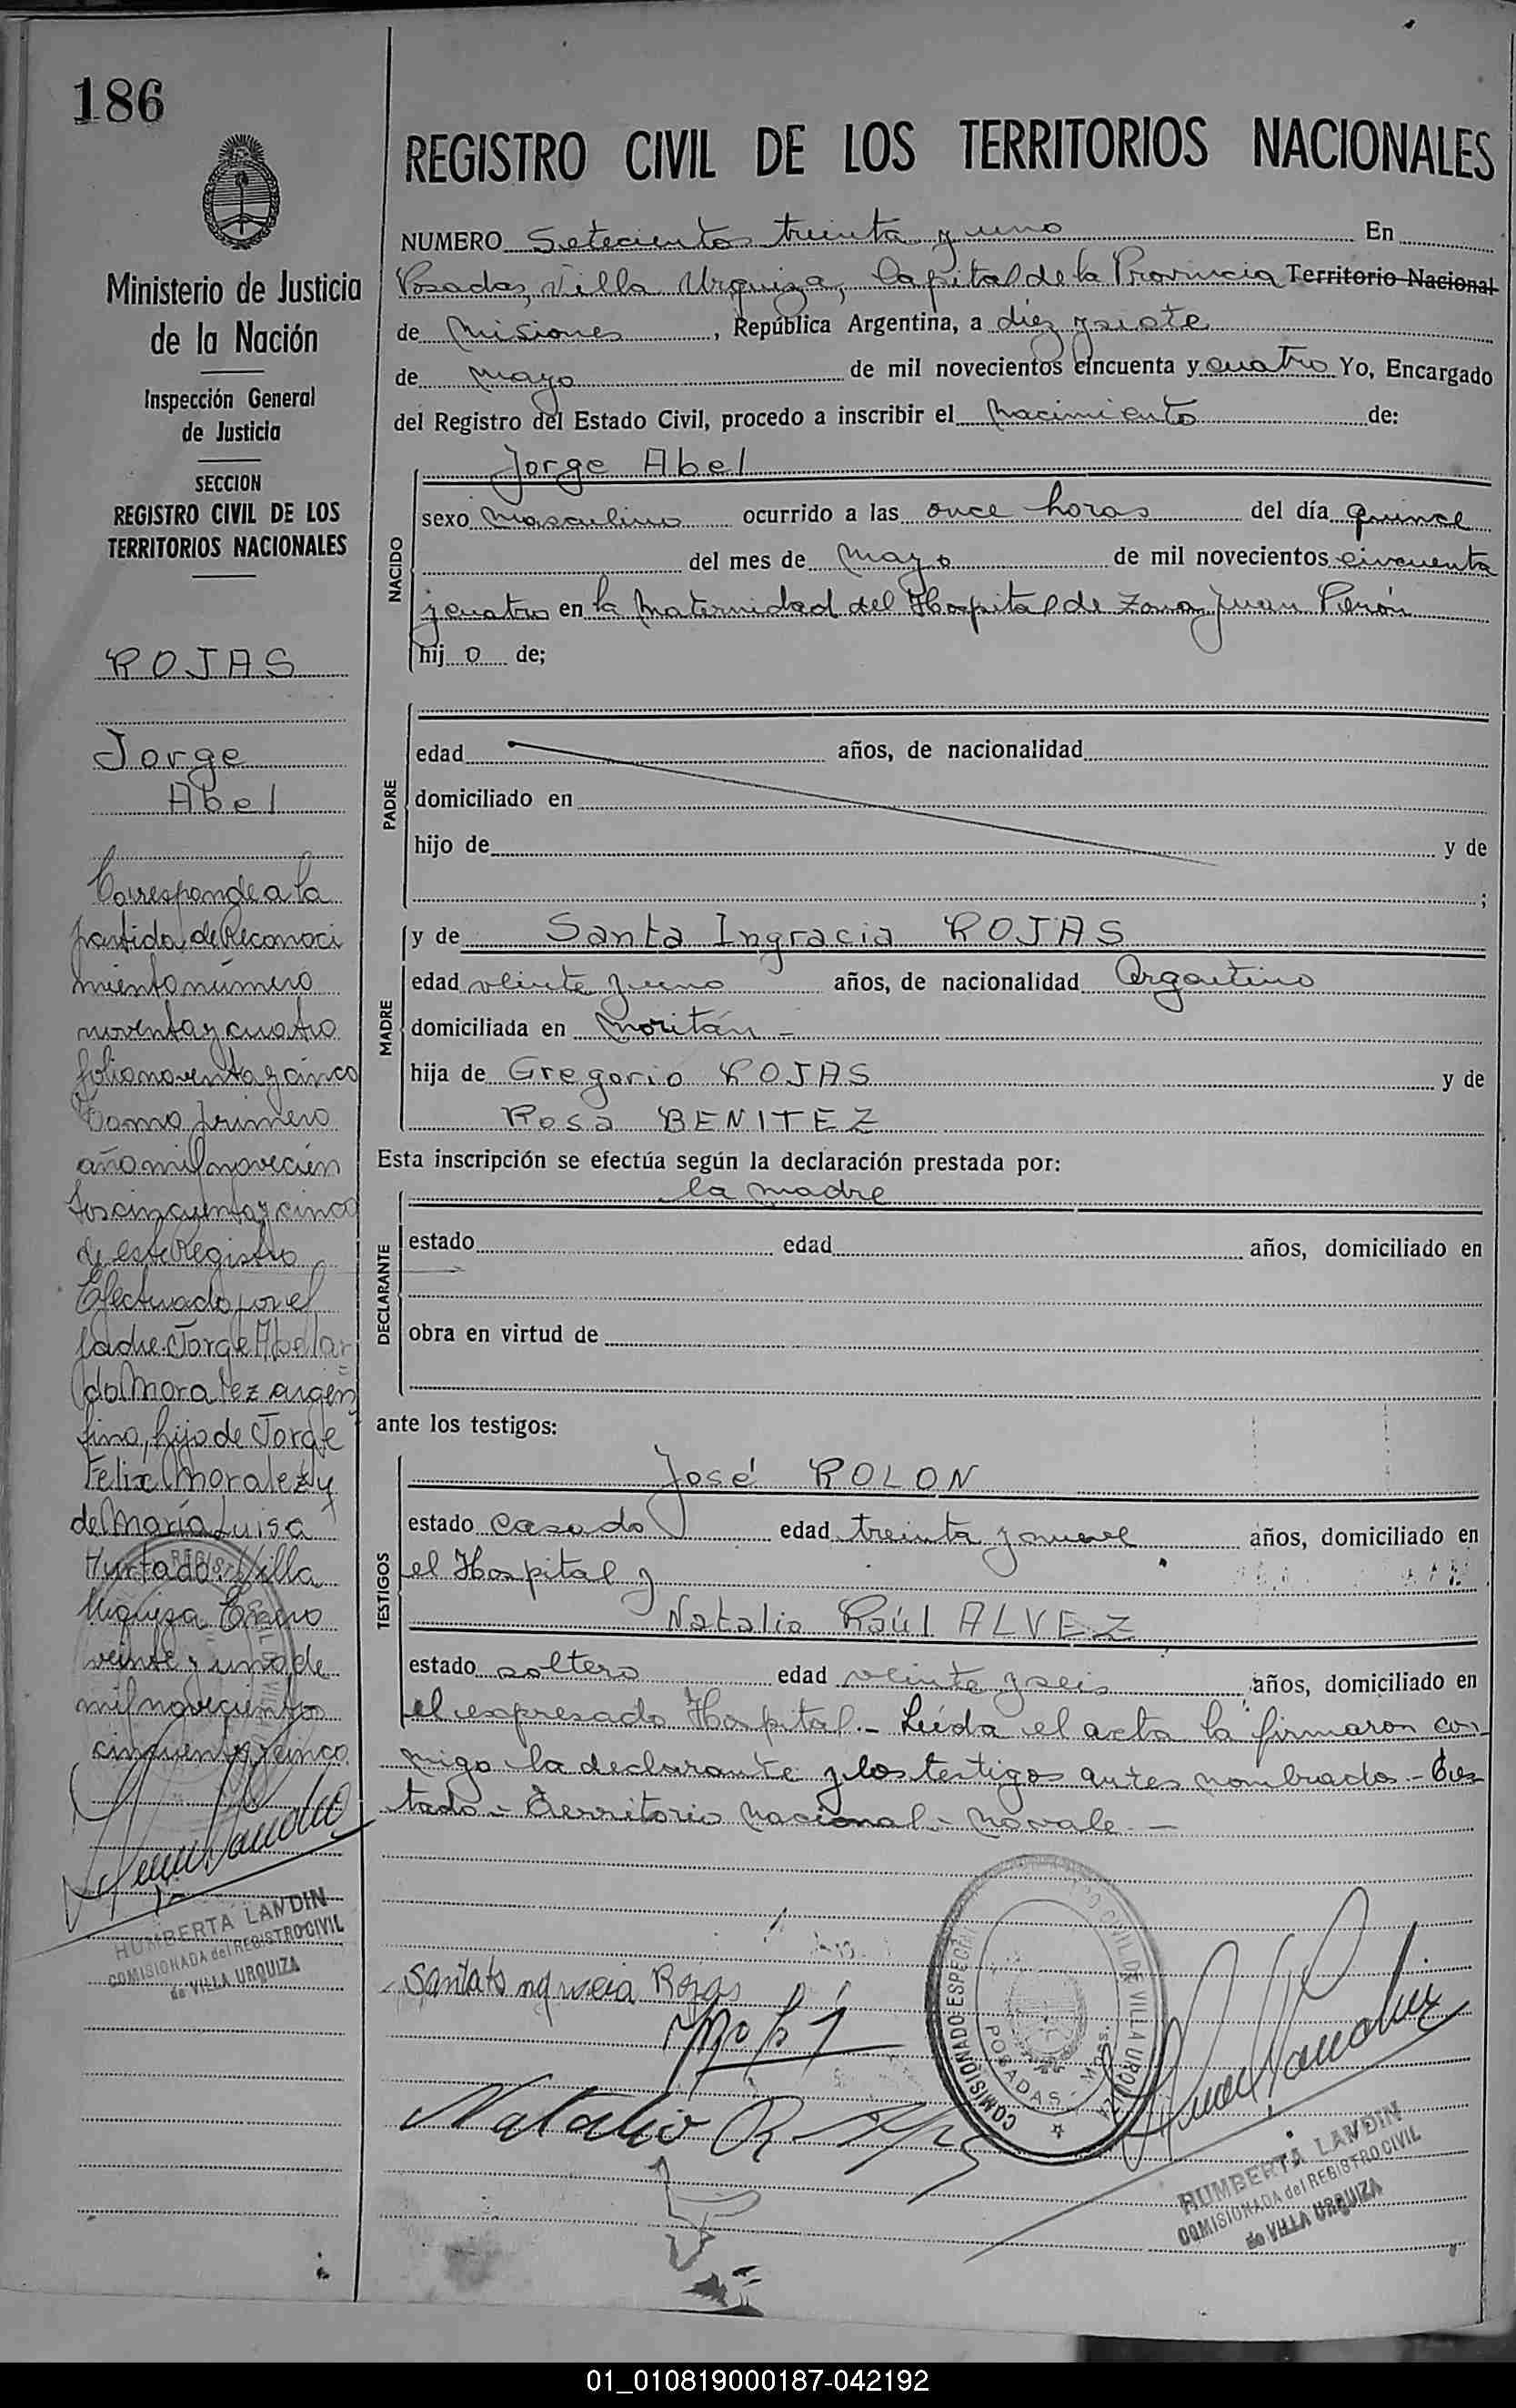 186
Ministerio de Justicia
de la Nación
Inspección General
de Justicia
SECCION
REGISTRO CIVIL DE LOS
TERRITORIOS NACIONALES
ROJAS
Jorge
Abel
Corresponde a la
partida de Reconoci
miento número
noventa y cuatro
folio noventa y cinco
Tomo primero
año mil novecien
tos cincuenta y cinco
de este Registro
Efectuado por el
padre Jorge Abelar
do Moralez argen
tino, hijo de Jorge
Felix Moralez y
de María Luisa
Hurtado. Villa
Urquiza Enero
veinte y uno de
mil novecientos
cincuenta y cinco
HUMBERTA LANDIN
COMISIONADA del REGISTRO CIVIL
de VILLA URQUIZA
REGISTRO CIVIL DE LOS TERRITORIOS NACIONALES
NUMERO Setecientos treinta y uno En
Posadas, Villa Urquiza, Capital de la Provincia Territorio Nacional
de Misiones, República Argentina, a diez y siete
de mayo de mil novecientos cincuenta y cuatro Yo, Encargado
del Registro del Estado Civil, procedo a inscribir el nacimiento de:
Jorge Abel
NACIDO
sexo masculino ocurrido a las once horas del día quince
del mes de mayo de mil novecientos cincuenta
y cuatro en la Maternidad del Hospital de Zona Juan Perón
hijo de;
PADRE
edad años, de nacionalidad
domiciliado en
hijo de y de
;
MADRE
y de Santa Ingracia ROJAS
edad veinte y uno años, de nacionalidad Argentino
domiciliada en Moritán -
hija de Gregorio ROJAS y de
Rosa BENITEZ
Esta inscripción se efectúa según la declaración prestada por:
la madre
DECLARANTE
estado edad años, domiciliado en
obra en virtud de
ante los testigos:
José ROLON
TESTIGOS
estado casado edad treinta y nueve años, domiciliado en
el Hospital y
Natalio Raúl ALVEZ
estado soltero edad veinte y seis años, domiciliado en
el expresado Hospital. - Leída el acta la firmaron con-
migo la declarante y los testigos antes nombrados. - Tes-
tado - Territorio Nacional - No vale. -
Natalio R.
COMISIONADO ESPECIAL
CIVIL DE VILLA URQUIZA
POSADAS - Mnes.
HUMBERTA LANDIN
COMISIONADA del REGISTRO CIVIL
de VILLA URQUIZA
01_010819000187-042192